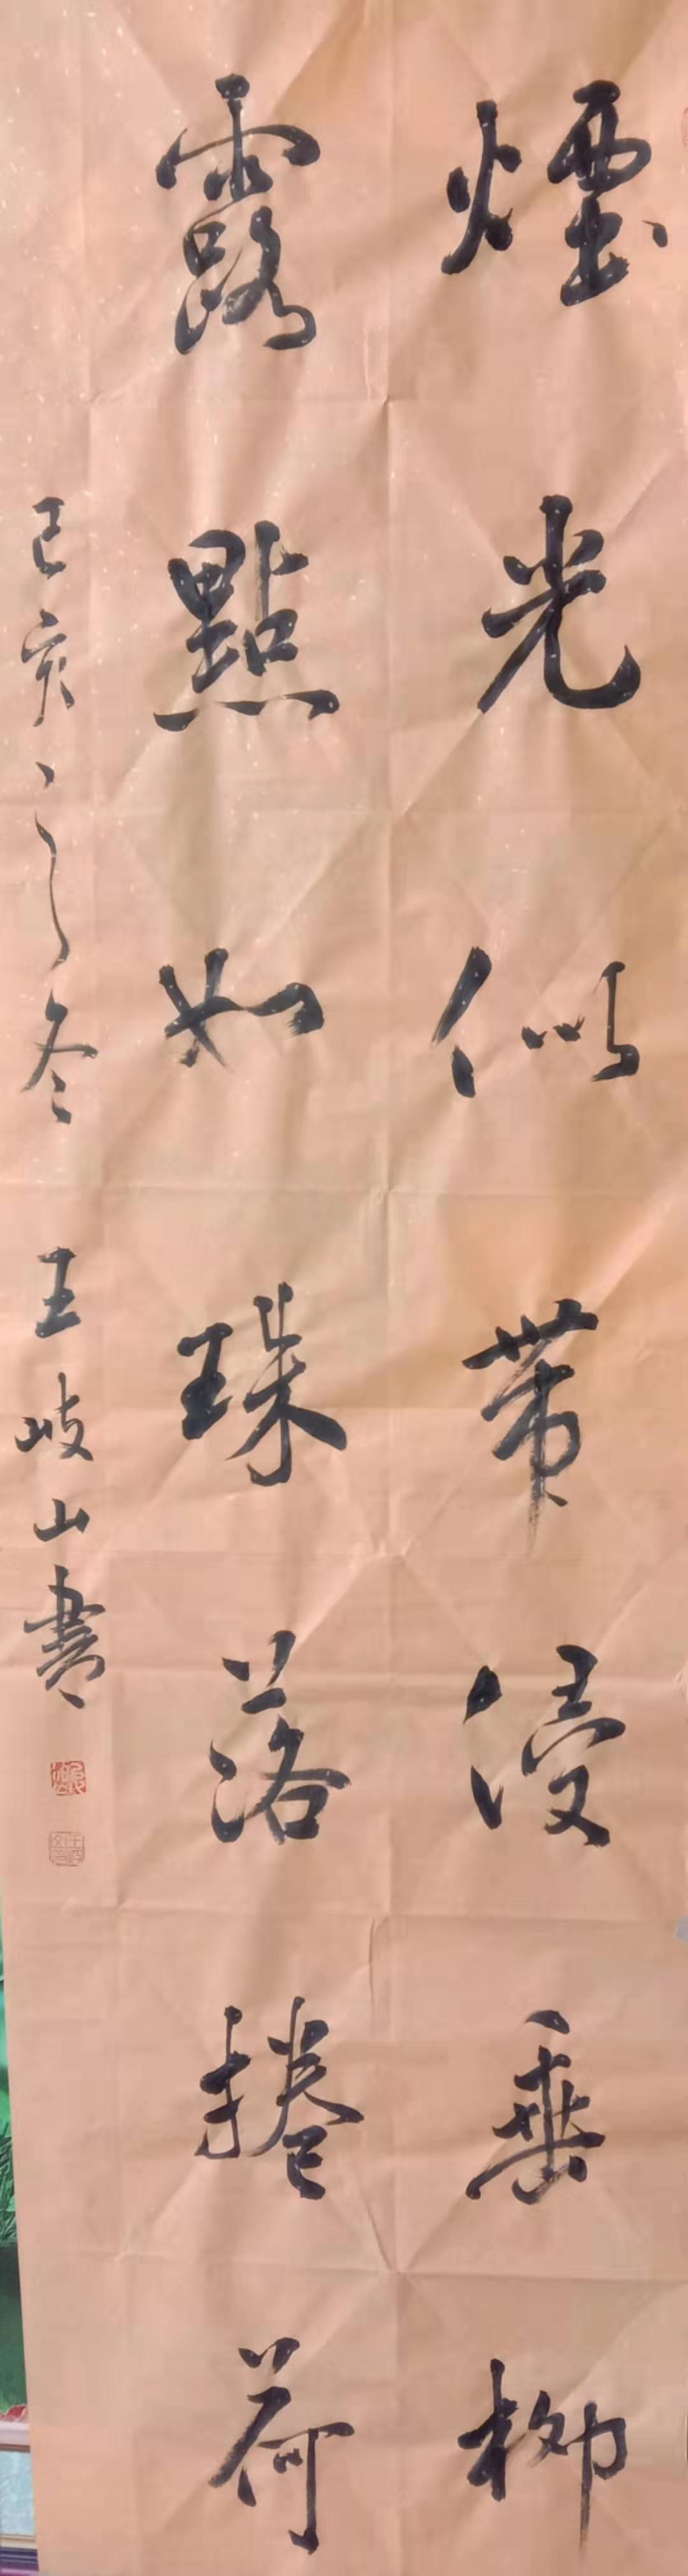 煙光似带侵垂柳
露點如珠落捲荷
己亥之冬 王岐山書